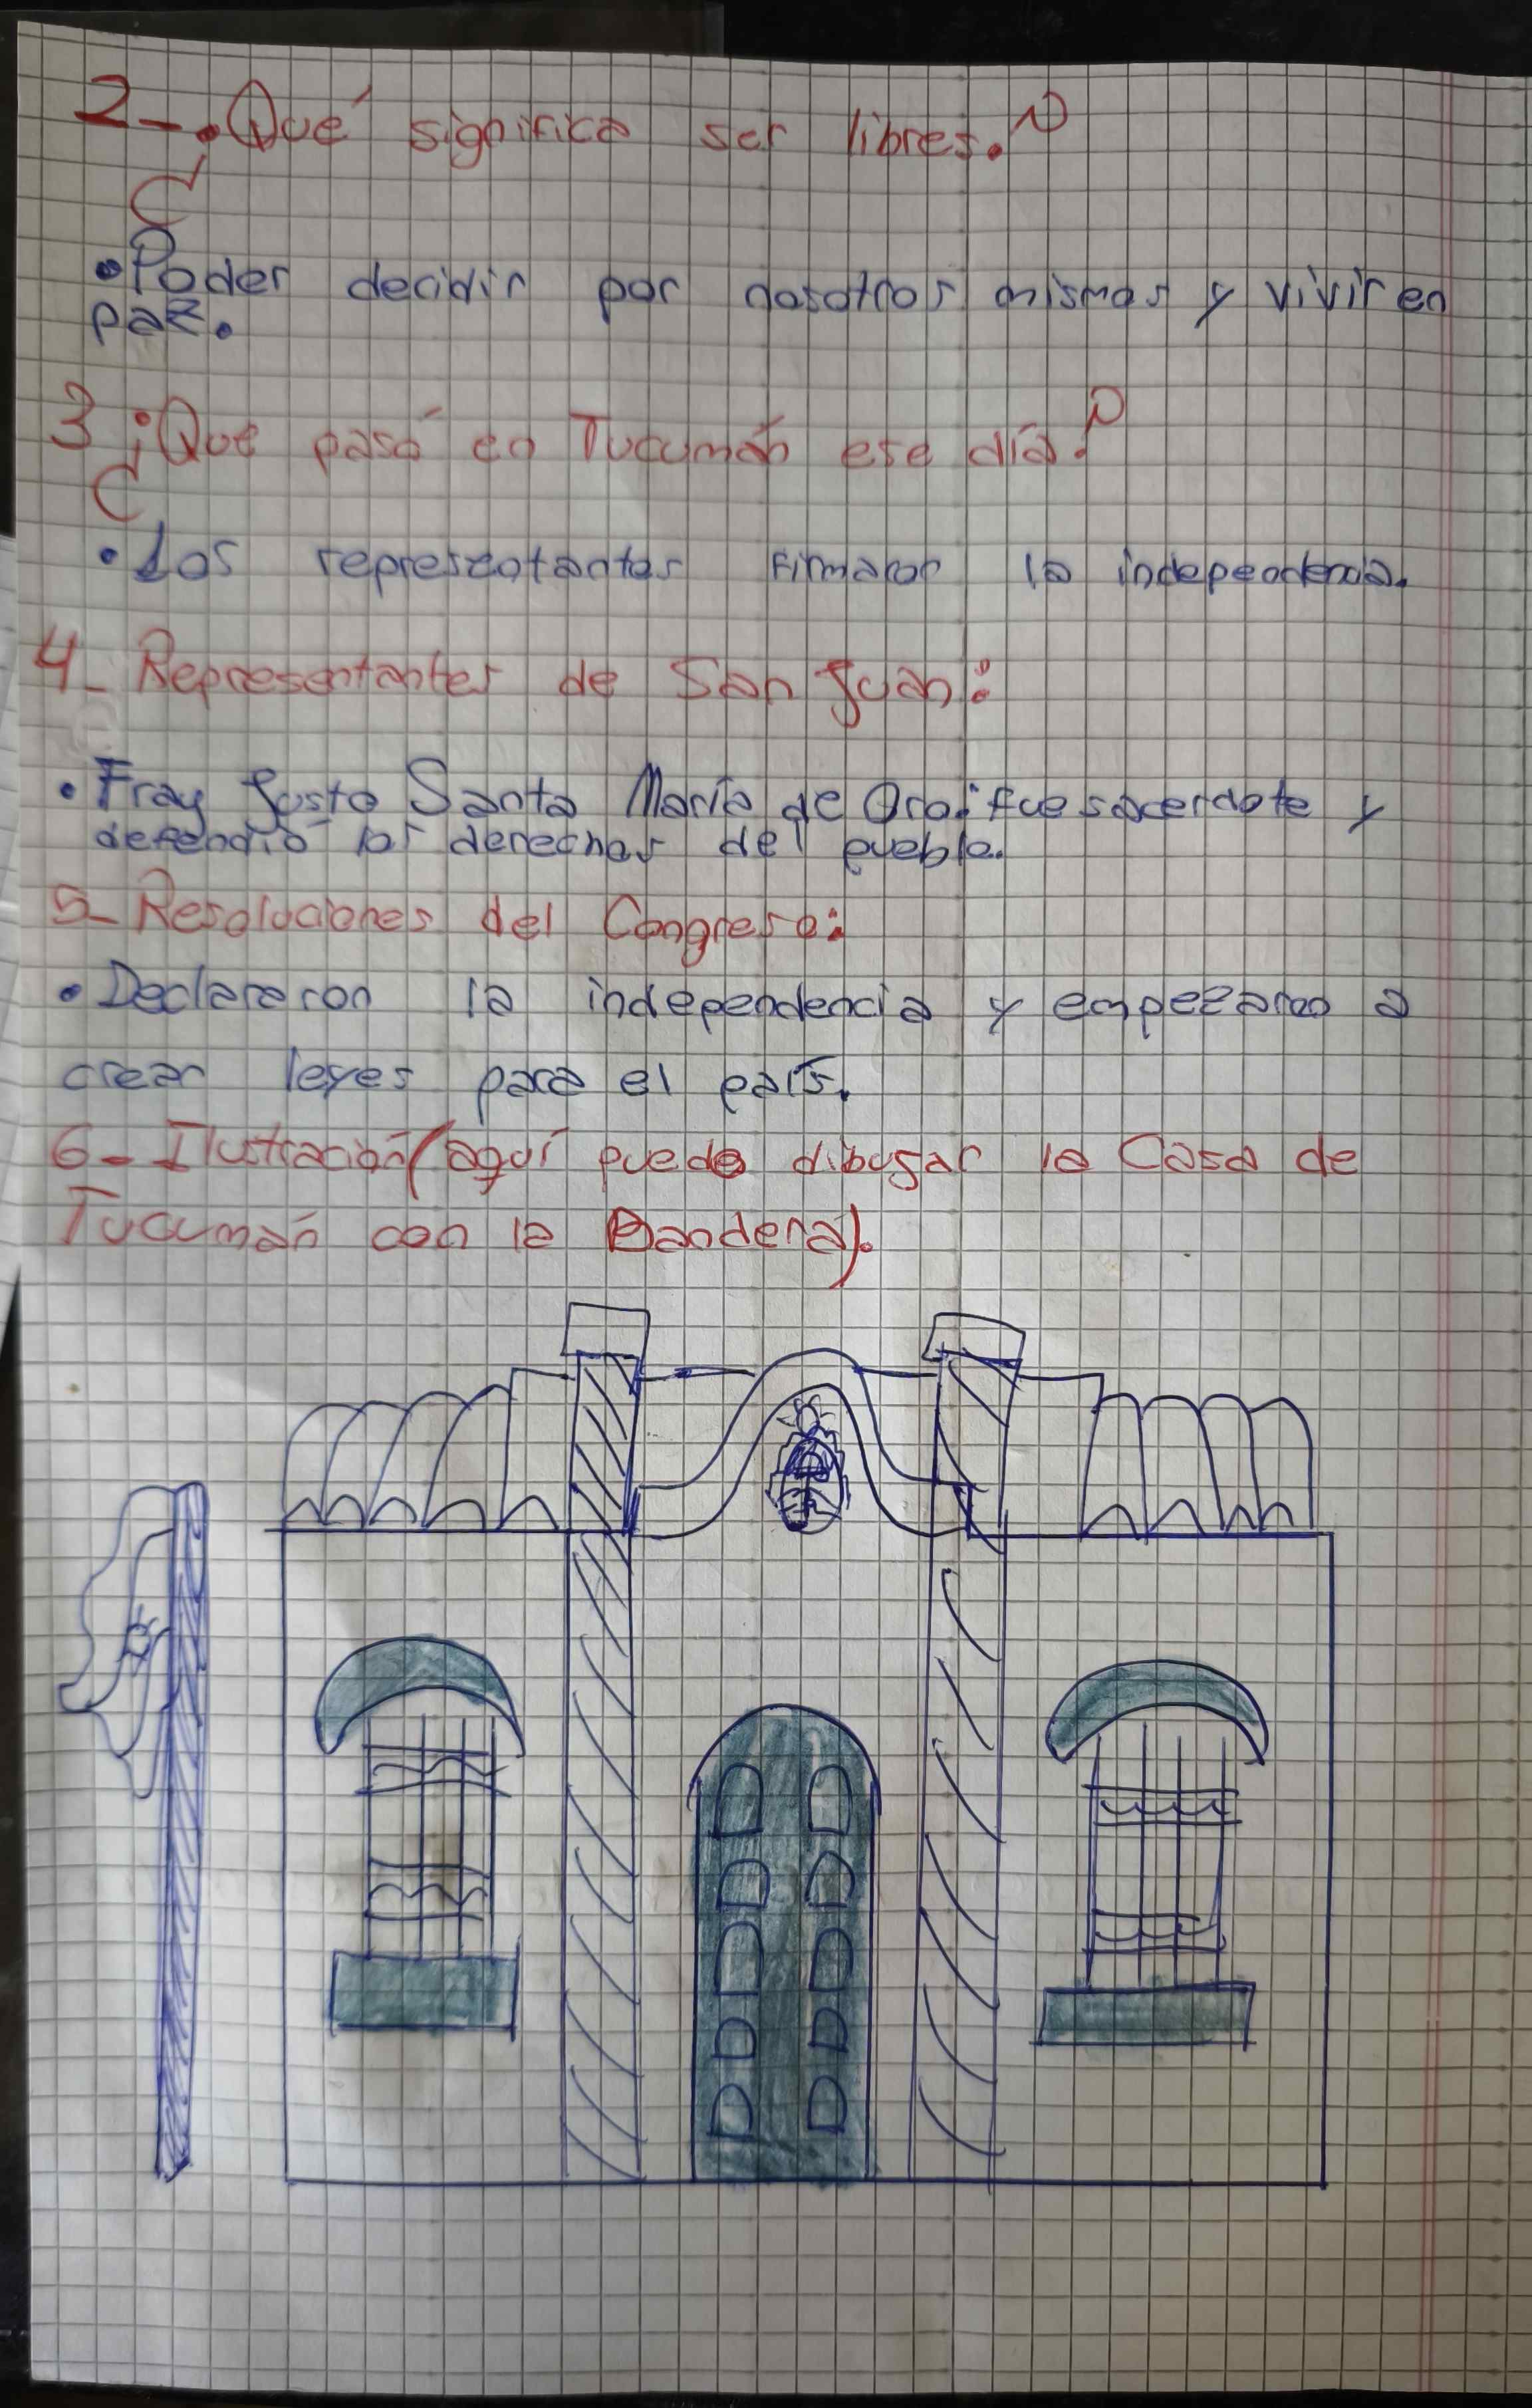 2-. ¿Qué significa ser libres.?
• Poder decidir por nosotros mismos y vivir en
paz.
3 ¿Que pasó en Tucumán ese día?
• Los representantes Firmaron la independencia.
4- Representantes de San Juan:
• Fray Justo Santa María de Oro: fue sacerdote y
defendió los derechos del pueblo.
5- Resoluciones del Congreso:
• Declararon la independencia y empezaron a
crear leyes para el país.
6- Ilustración (aquí puede dibujar la Casa de
Tucumán con la Bandera).